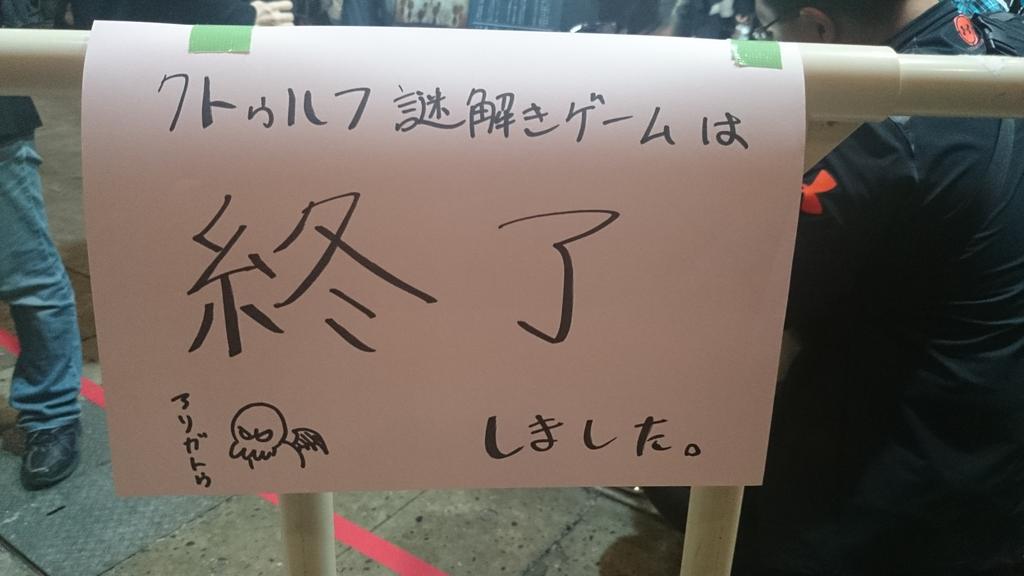 クトゥルフ謎解きゲームは
終了
しました。
アリガトウ